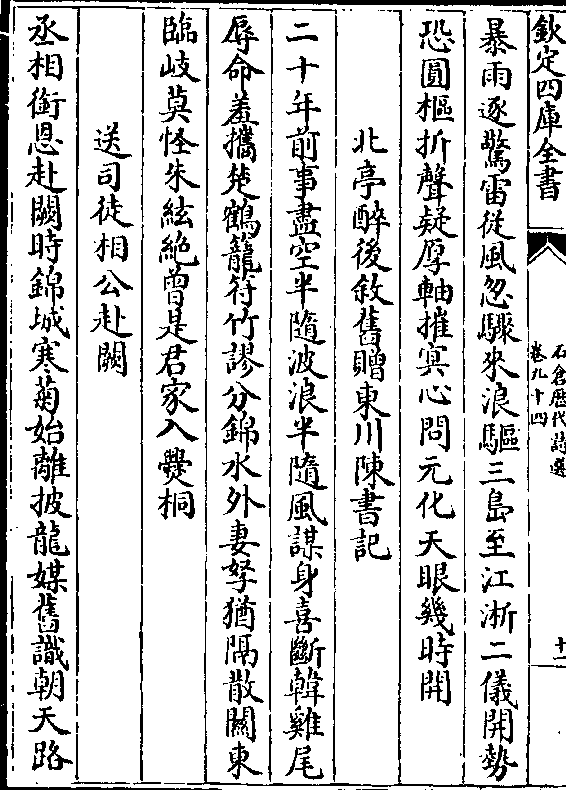 欽定四庫全書
石倉歷代詩選
卷九十四
十一
暴雨逐驚雷從風忽驟來浪驅三島至江淅二儀開勢
恐圓樞折聲疑厚軸摧冥心問元化天眼幾時開
北亭醉後敘舊贈東川陳書記
二十年前事盡空半隨波浪半隨風謀身喜斷韓雞尾
辱命羞攜楚鶴籠符竹謬分錦水外妻孥猶隔散關東
臨岐莫怪朱絃絶曾是君家入爨桐
送司徒相公赴闕
丞相銜恩赴闕時錦城寒菊始離披龍媒舊識朝天路